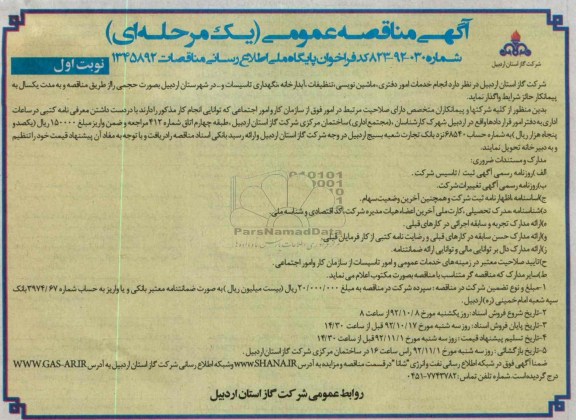 آگهی مناقصه عمومی (یک مرحله‌ای)
شماره ۰۳۰-۹۲-۸۲۳ کد فراخوان پایگاه ملی اطلاع رسانی مناقصات ۱۳۴۵۸۹۲
شرکت گاز استان اردبیل
نوبت اول
شرکت گاز استان اردبیل در نظر دارد انجام خدمات امور دفتری، ماشین نویسی، تنظیفات، آبدارخانه نگهداری تاسیسات و... در شهرستان اردبیل بصورت حجمی را از طریق مناقصه و به مدت یکسال به
پیمانکار حائز شرایط واگذار نماید.
بدین منظور از کلیه شرکتها و پیمانکاران متخصص دارای صلاحیت مرتبط در امور فوق از سازمان کار و امور اجتماعی که توانایی انجام کار مذکور را دارند با در دست داشتن معرفی نامه کتبی در ساعات
اداری به دفتر امور قراردادها واقع در اردبیل شهرک کارشناسان (مجتمع اداری) ساختمان مرکزی شرکت گاز استان اردبیل، طبقه چهارم اتاق شماره ۴۱۲ مراجعه و ضمن واریز مبلغ ۱۵۰۰۰۰ ریال (یکصد و
پنجاه هزار ریال) به شماره حساب ۶۸۵۴۰ نزد بانک تجارت شعبه بسیج اردبیل در وجه شرکت گاز استان اردبیل و ارائه رسید بانکی اسناد مناقصه را دریافت و با توجه به مفاد آن پیشنهاد قیمت خود را تنظیم
و به دبیرخانه تحویل نمایند.
مدارک و مستندات ضروری:
الف) روزنامه رسمی آگهی ثبت / تاسیس شرکت.
ب) روزنامه رسمی آگهی تغییرات شرکت.
ج) اساسنامه، اظهار نامه ثبت شرکت و همچنین آخرین وضعیت سهام.
د) شناسنامه، مدرک تحصیلی، کارت ملی آخرین اعضاء هیات مدیره شرکت، کد اقتصادی و شناسه ملی.
ه) ارائه مدارک تجربه و سابقه اجرائی در کارهای قبلی.
و) ارائه مدارک حسن سابقه در کارهای قبلی و رضایت نامه کتبی از کارفرمایان قبلی.
ز) ارائه مدارک دال بر توانایی مالی و توانایی ارائه ضمانتنامه.
ح) تایید صلاحیت معتبر در زمینه‌های خدمات عمومی و امور تاسیسات از سازمان کار و امور اجتماعی.
ط) سایر مدارک که مناقصه گر متناسب با مناقصه بصورت مکتوب اعلام می نماید.
۱- مبلغ و نوع تضمین شرکت در مناقصه: سپرده شرکت در مناقصه به مبلغ ۲۰/۰۰۰/۰۰۰ ریال (بیست میلیون ریال) به صورت ضمانتنامه معتبر بانکی و یا واریز به حساب شماره ۳۹۷۴/۶۷ بانک
سپه شعبه امام خمینی (ره) اردبیل.
۲- تاریخ شروع فروش اسناد: روز یکشنبه مورخ ۹۲/۱۰/۸ از ساعت ۸
۳- تاریخ پایان فروش اسناد: روز سه شنبه مورخ ۹۲/۱۰/۱۷ قبل از ساعت ۱۴/۳۰
۴- تاریخ تسلیم پیشنهاد قیمت: روز سه شنبه مورخ ۹۲/۱۱/۱ قبل از ساعت ۱۴/۳۰
۵- تاریخ بازگشائی: روز سه شنبه مورخ ۹۲/۱۱/۱ راس ساعت ۱۶ در ساختمان مرکزی شرکت گاز استان اردبیل.
ضمنا آگهی فوق در شبکه اطلاع رسانی نفت و انرژی "شانا" در قسمت مناقصه و مزایده به آدرس www.SHANA.IR و شبکه اطلاع رسانی شرکت گاز استان اردبیل به آدرس WWW.GAS-AR.IR
درج گردیده است. شماره تلفن تماس: ۷۷۴۳۷۸۲-۰۴۵۱
روابط عمومی شرکت گاز استان اردبیل
ParsNamadData